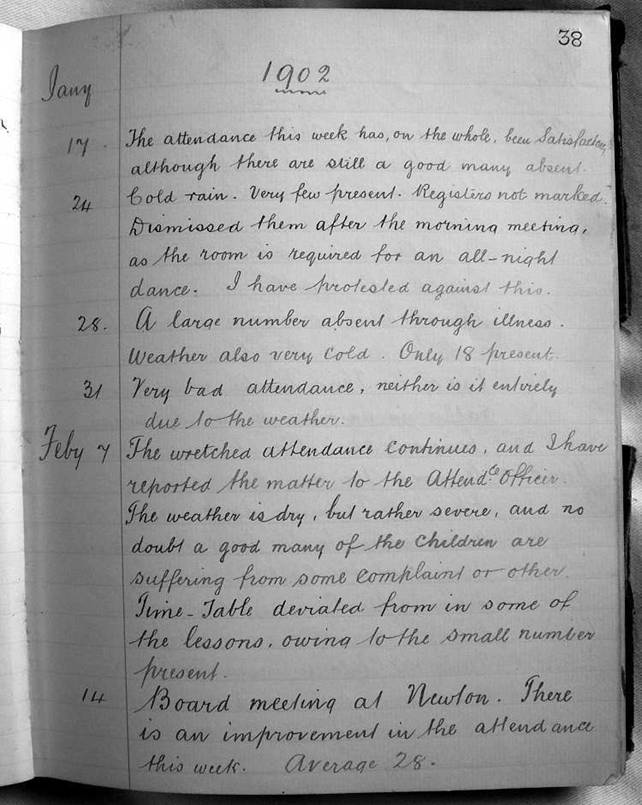 38
1902
Jany
17. The attendance this week has, on the whole, been Satisfactory
although there are still a good many absent.
24 Cold rain. Very few present. Registers not marked.
Dismissed them after the morning meeting,
as the room is required for an all-night
dance. I have protested against this.
28. A large number absent through illness.
Weather also very cold. Only 18 present.
31 Very bad attendance, neither is it entirely
due to the weather.
Feby 7 The wretched attendance continues, and I have
reported the matter to the Attendce Officer.
The weather is dry, but rather severe, and no
doubt a good many of the children are
suffering from some complaint or other.
Time-Table deviated from in some of
the lessons, owing to the small number
present.
14 Board meeting at Newton. There
is an improvement in the attendance
this week. Average 28.